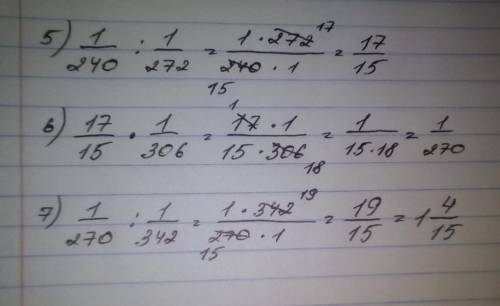 5) 1/240 : 1/272 = (1 · 272 17)/(240 15 · 1) = 17/15
6) 17/15 · 1/306 = (17 1 · 1)/(15 · 306 18) = 1/(15·18) = 1/270
7) 1/270 : 1/342 = (1 · 342 19)/(270 15 · 1) = 19/15 = 1 4/15